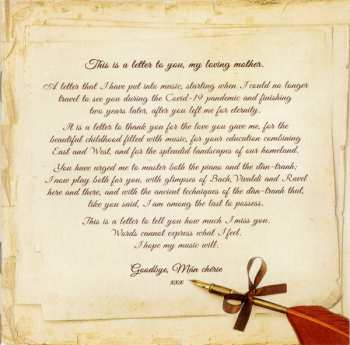 This is a letter to you, my loving mother.
A letter that I have put into music, starting when I could no longer
travel to see you during the Covid-19 pandemic and finishing
two years later, after you left me for eternity.
It is a letter to thank you for the love you gave me, for the
beautiful childhood filled with music, for your education combining
East and West, and for the splendid landscapes of our homeland.
You have urged me to master both the piano and the dàn-tranh;
I now play both for you, with glimpses of Bach, Vivaldi and Ravel
here and there, and with the ancient techniques of the dàn-tranh that,
like you said, I am among the last to possess.
This is a letter to tell you how much I miss you.
Words cannot express what I feel.
I hope my music will.
Goodbye, Măn chérie
xxx